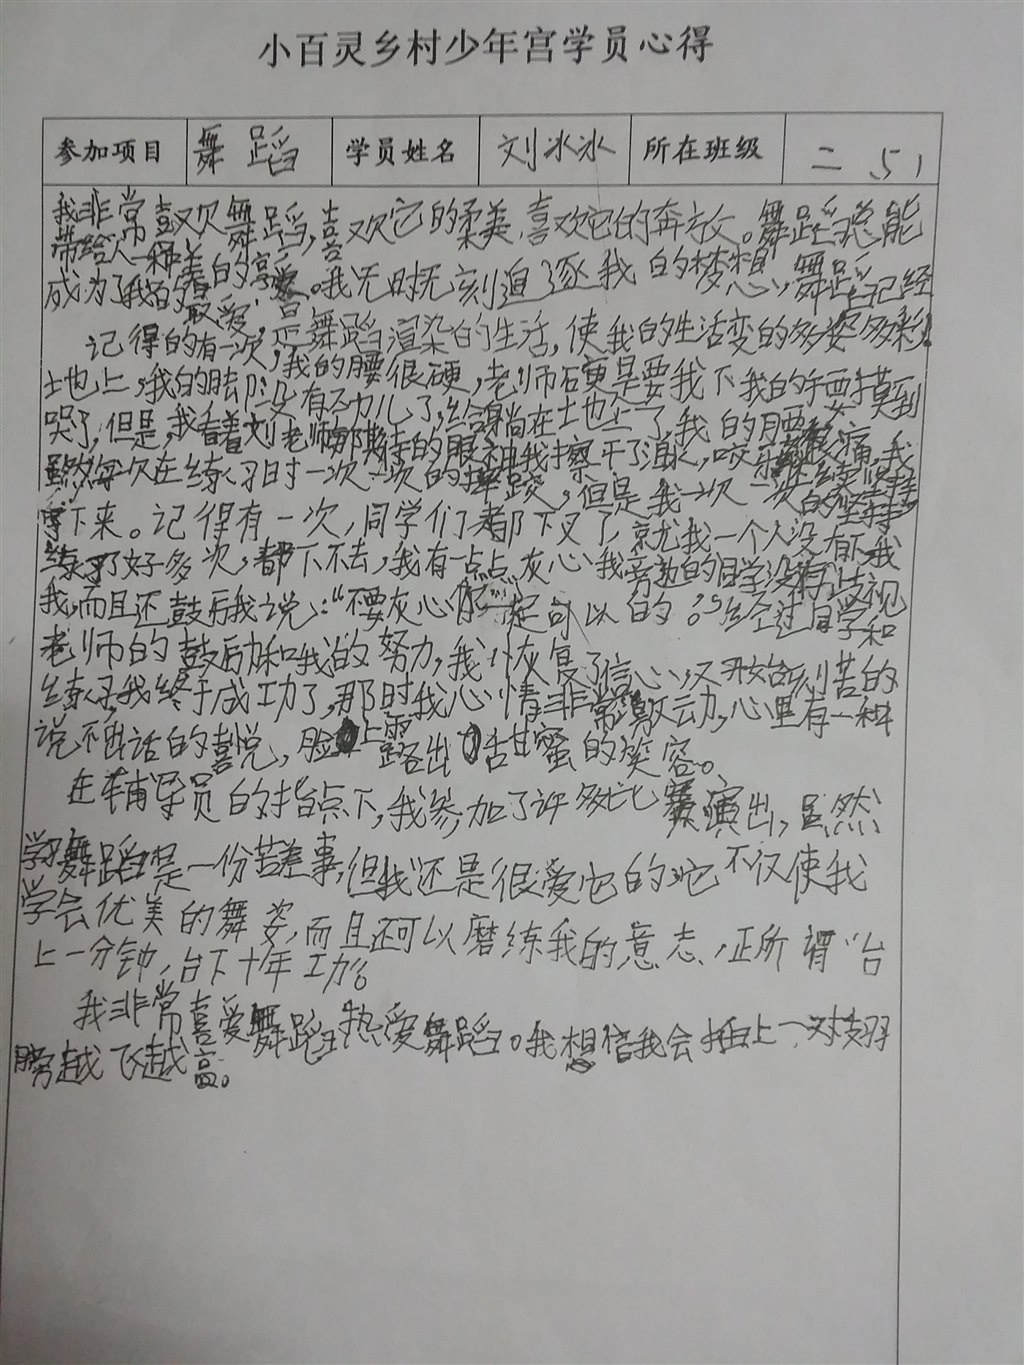 小百灵乡村少年宫学员心得
参加项目 舞蹈 学员姓名 刘冰冰 所在班级 二 51
我非常喜欢舞蹈,喜欢它的柔美,喜欢它的奔放。舞蹈总能
带给人一种美的享受。我无时无刻追逐我的梦想,舞蹈已经
成为了我的最爱,是舞蹈渲染的生活,使我的生活变的多姿多彩!
记得的有一次,我的腰很硬,老师硬是要我下我的手要摸到
土地上,我的脚没有力儿了,结身躺在土地上了,我的腰很痛,我
哭了,但是,我看着刘老师那期待的眼神我擦干了泪,咬
虽然每次在练习时一次一次的摔跤,但是我一次一次的坚持
下来。记得有一次,同学们都下叉了,就我一个人没有下我
练了好多次,都下不去,我有一点点灰心我旁边的同学没有歧视
我,而且还鼓历我说:“不要灰心你一定可以的。”经过同学和
老师的鼓励和我的努力,我恢复了信心,又开始刻苦的
练习我终于成功了,那时我心情非常激动,心里有一种
说不出话的喜悦,脸上露出甜蜜的笑容。
在辅导员的指点下,我参加了许多比赛演出,虽然
学习舞蹈是一份苦差事,但我还是很爱它的它不仅使我
学会优美的舞姿,而且还可以磨练我的意志,正所谓“台
上一分钟,台下十年功”。
我非常喜爱舞蹈热爱舞蹈。我相信我会插上一对翅
膀越飞越高。